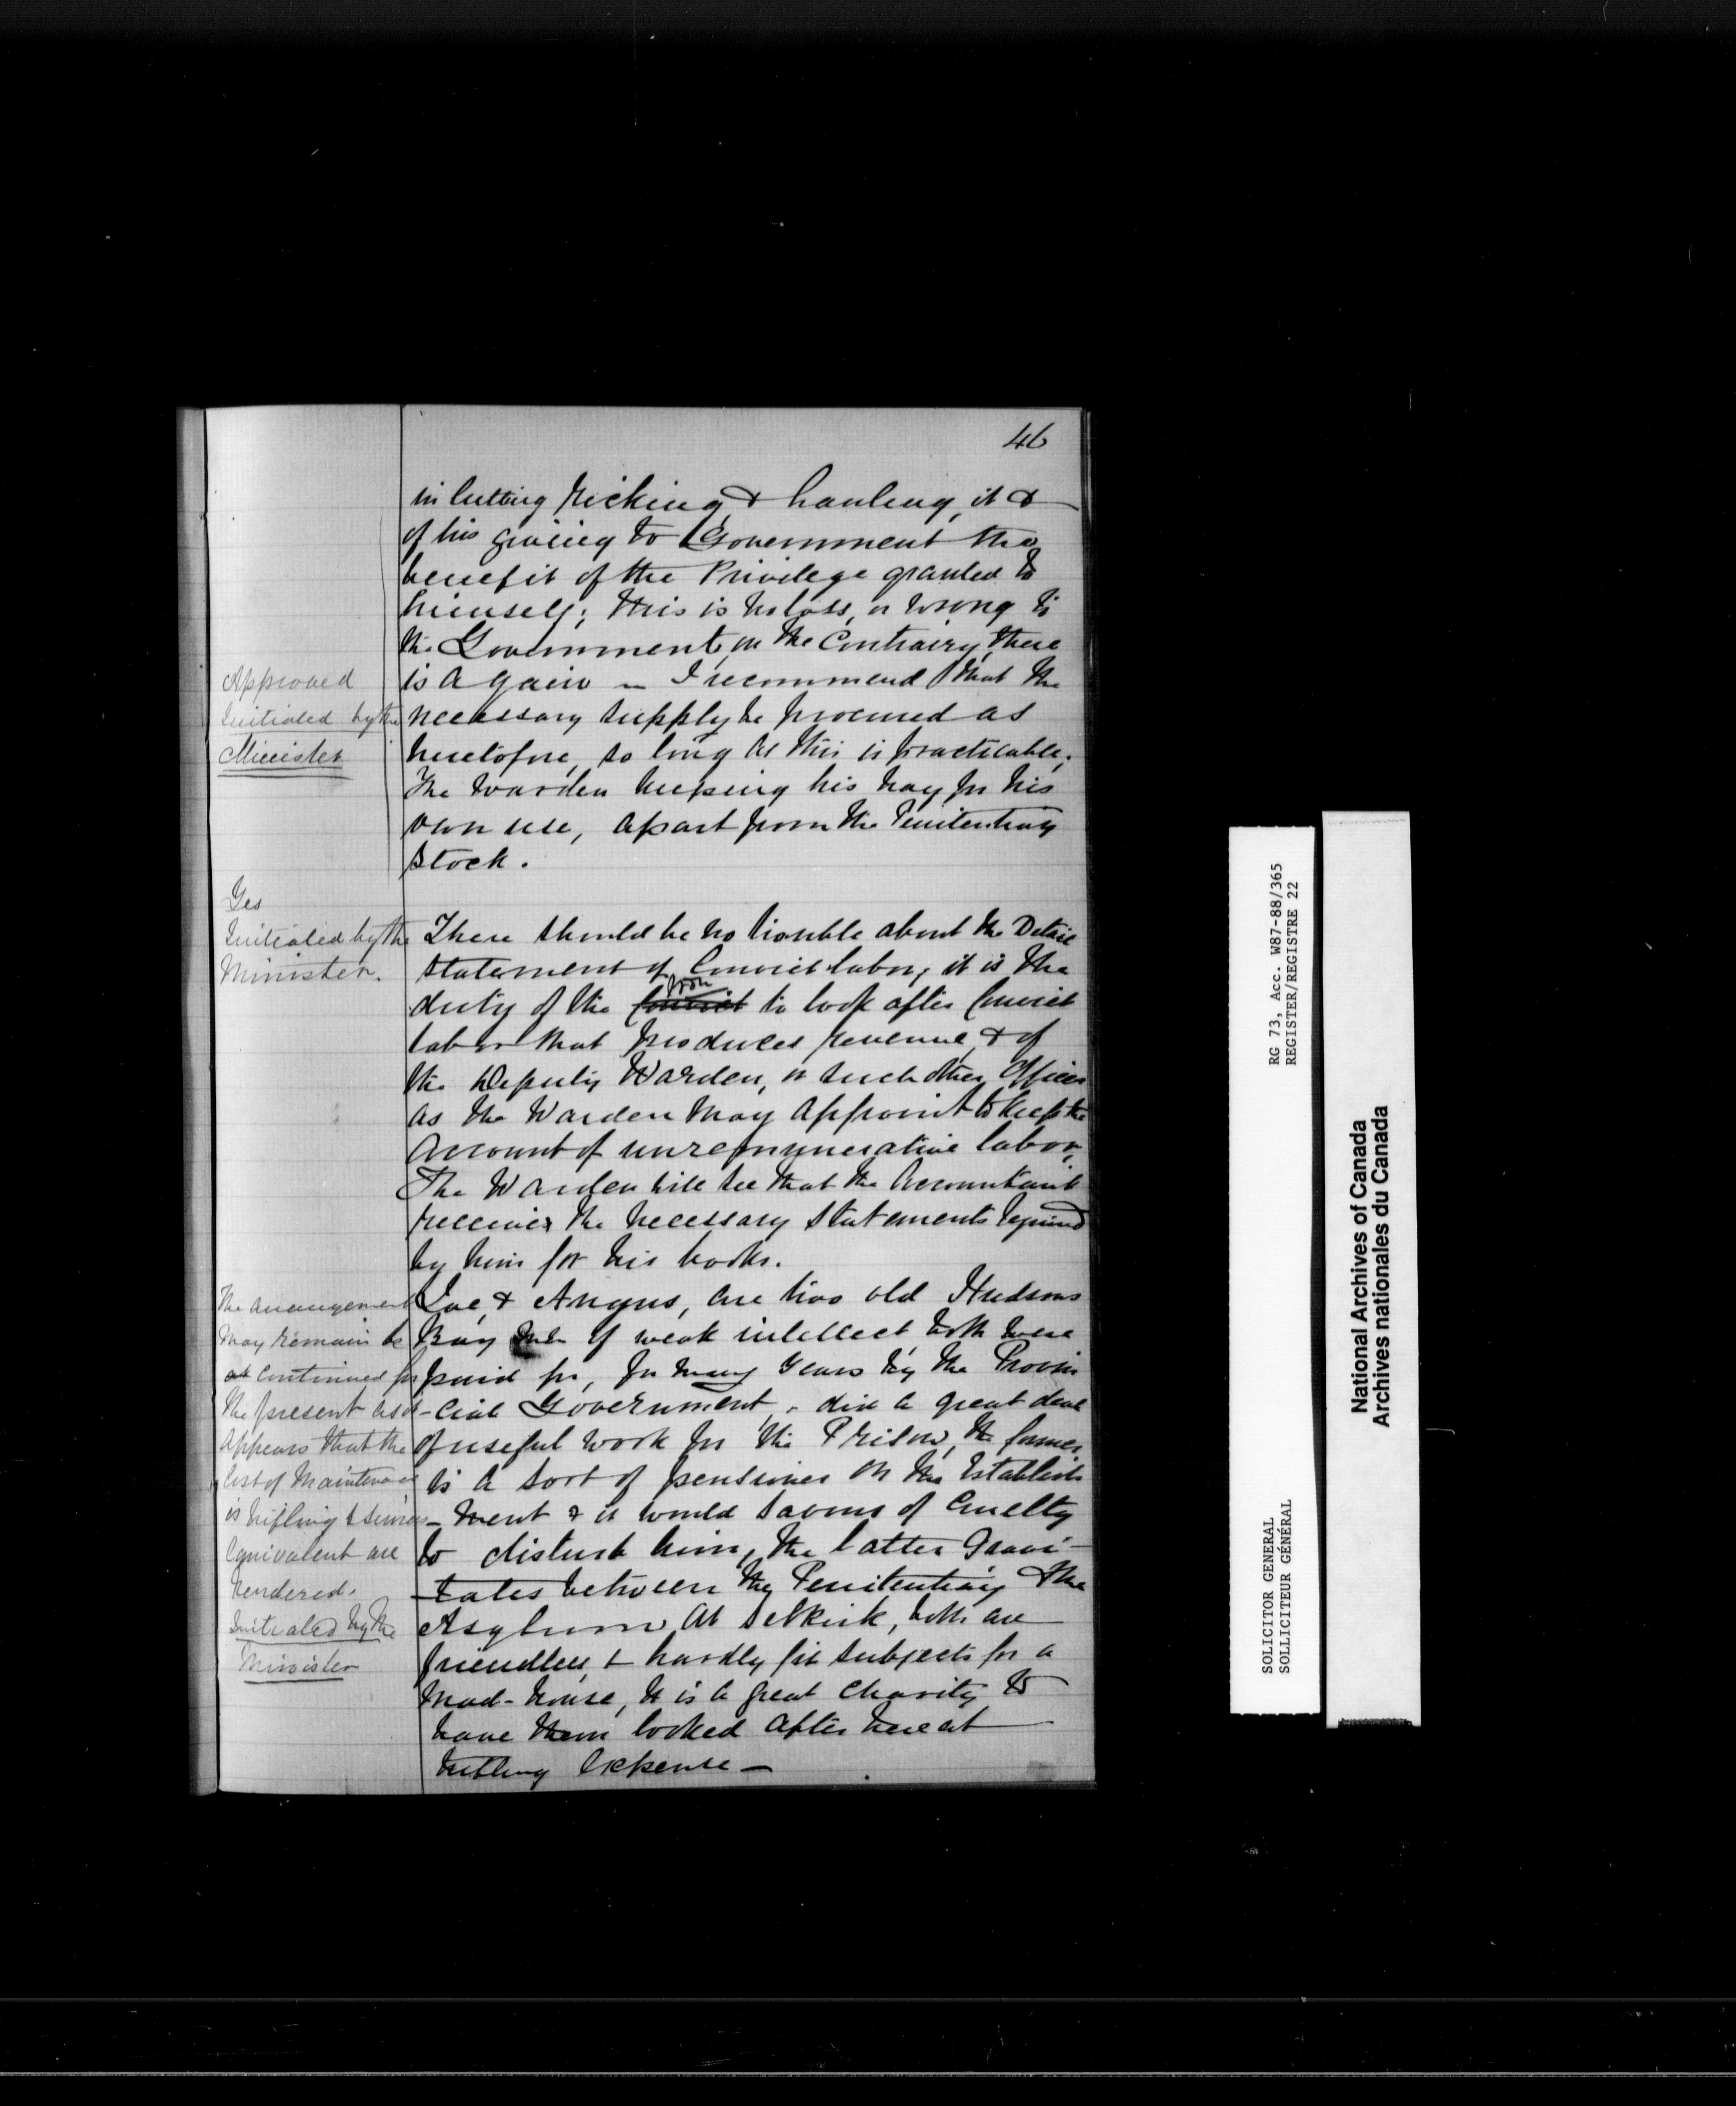 46
in cutting ricking & hauling, it &
of his giving to Government the
benefit of the Privilege granted to
himself; this is no loss, or wrong to
the Government, on the Contrairy, there
is a gain — I recommend that the
necessary supply be procured as
heretofore, so long as this is practicable;
The Warden keeping his hay for his
own use, apart from the Penitentiary
Stock.
Approved
Initialed by the
Minister
There should be no trouble about the Detail
statement of Convict labor, it is the
duty of the Convict to look after Convict
labor that produces revenue, & of
the Deputy Warden, or such other Officer
as the Warden may appoint to keep the
account of unremunerative labor,
The Warden will see that the Accountant
receives the necessary statements required
by him for his books.
Yes
Initialed by the
Minister.
Joe, & Angus, are two old Hudsons
Bay men of weak intellect both were
paid for, for many years by the Provin
-cial Government, did a great deal
of useful work for the Prison, the former
is a sort of pensioner on the Establish
-ment & it would savour of Cruelty
to disturb him, the latter Gravi-
-tates between the Penitentiary & the
Asylum at Selkirk, both are
friendless, & hardly fit subjects for a
Mad-house, it is a great Charity to
have them looked after here at
trifling Expense —
The arrangement
may remain be
as continued for
the present as it
appears that the
cost of Maintenance
is trifling & services
equivalent are
rendered.
Initialed by the
Minister
RG 73, Acc. W87-88/365
REGISTER/REGISTRE 22
SOLICITOR GENERAL
SOLLICITEUR GÉNÉRAL
National Archives of Canada
Archives nationales du Canada